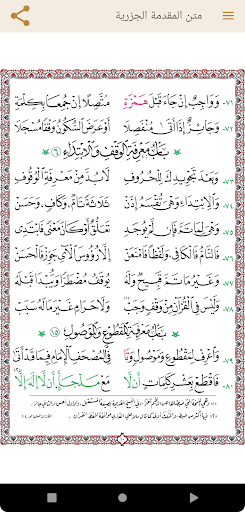 متن المقدمة الجزرية
٧١- وَوَاجِبٌ إِنْ جَاءَ قَبْلَ هَمْزَةِ مُتَّصِلًا إِنْ جُمِعَا بِكِلْمَةِ
٧٢- وَجَائِزٌ إِذَا أَتَى مُنْفَصِلَا أَوْ عَرَضَ السُّكُونُ وَقْفًا مُسْجَلَا
بَابُ مَعْرِفَةِ الْوَقْفِ وَالِابْتِدَاءِ ٦
٧٣- وَبَعْدَ تَجْوِيدِكَ لِلْحُرُوفِ لَابُدَّ مِنْ مَعْرِفَةِ الْوُقُوفِ
٧٤- وَالِابْتِدَاءِ وَهْيَ تُقْسَمُ إِذَنْ ثَلَاثَةً تَامٌ، وَكَافٍ، وَحَسَنْ
٧٥- وَهْيَ لِمَا تَمَّ فَإِنْ لَمْ يُوجَدِ تَعَلُّقٌ أَوْ كَانَ مَعْنًى فَابْتَدِي
٧٦- فَالتَّامُ فَالْكَافِي وَلَفْظًا فَامْنَعَنْ إِلَّا رُؤُوسَ الْآيِ جَوِّزْ فَالْحَسَنْ
٧٧- وَغَيْرُ مَا تَمَّ قَبِيحٌ وَلَهُ يُوقَفُ مُضْطَرًّا وَيُبْدَا قَبْلَهُ
٧٨- وَلَيْسَ فِي الْقُرْآنِ مِنْ وَقْفٍ وَجَبْ وَلَا حَرَامٌ غَيْرُ مَا لَهُ سَبَبْ
بَابُ مَعْرِفَةِ الْمَقْطُوعِ وَالْمَوْصُولِ ١٥
٧٩- وَاعْرِفْ لِمَقْطُوعٍ وَمَوْصُولٍ وَتَا فِي الْمُصْحَفِ الْإِمَامِ فِيمَا قَدْ أَتَى
٨٠- فَاقْطَعْ بِعَشْرِ كَلِمَاتٍ أَنْ لَا مَعْ مَلْجَأٍ، أَنْ لَا إِلَهَ إِلَّا